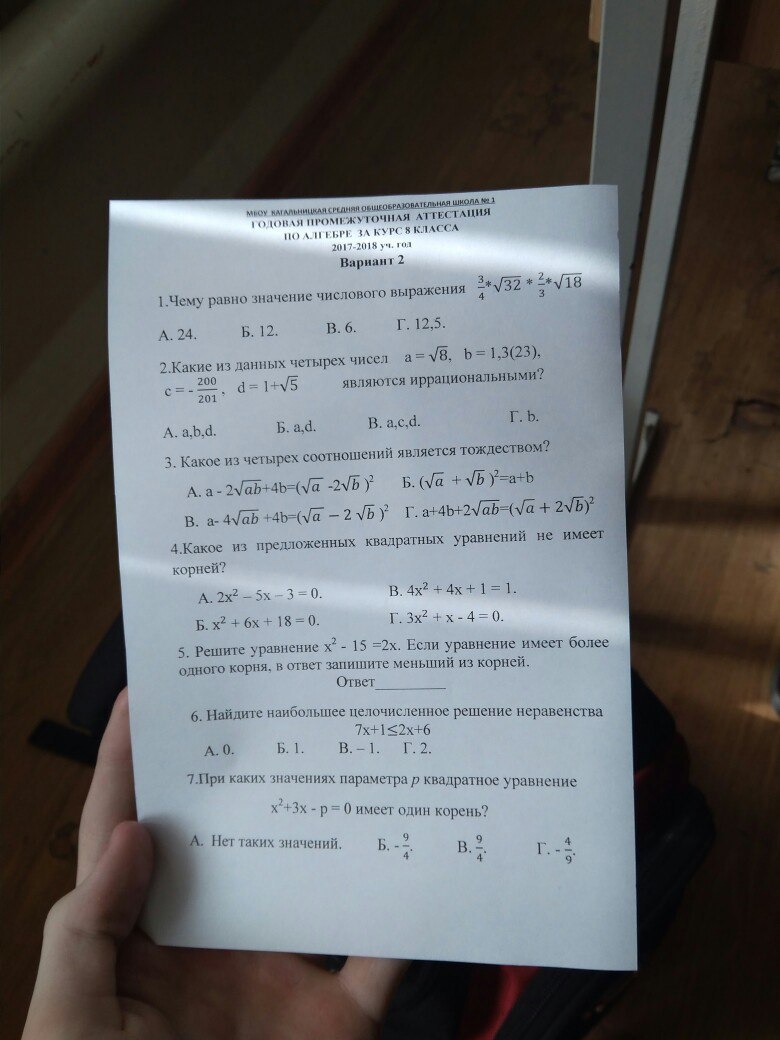 МБОУ КАГАЛЬНИЦКАЯ СРЕДНЯЯ ОБЩЕОБРАЗОВАТЕЛЬНАЯ ШКОЛА № 1
ГОДОВАЯ ПРОМЕЖУТОЧНАЯ АТТЕСТАЦИЯ
ПО АЛГЕБРЕ ЗА КУРС 8 КЛАССА
2017-2018 уч. год
Вариант 2
1.Чему равно значение числового выражения 3/4*√32 * 2/3*√18
А. 24. Б. 12. В. 6. Г. 12,5.
2.Какие из данных четырех чисел a = √8, b = 1,3(23),
c = - 200/201 , d = 1+√5 являются иррациональными?
А. a,b,d. Б. a,d. В. a,c,d. Г. b.
3. Какое из четырех соотношений является тождеством?
А. a - 2√ab+4b=(√a -2√b )² Б. (√a + √b )²=a+b
В. a- 4√ab +4b=(√a − 2 √b )² Г. a+4b+2√ab=(√a + 2√b)²
4.Какое из предложенных квадратных уравнений не имеет
корней?
А. 2x² – 5x – 3 = 0. В. 4x² + 4x + 1 = 1.
Б. x² + 6x + 18 = 0. Г. 3x² + x - 4 = 0.
5. Решите уравнение x² - 15 =2x. Если уравнение имеет более
одного корня, в ответ запишите меньший из корней.
Ответ__________
6. Найдите наибольшее целочисленное решение неравенства
7x+1≤2x+6
А. 0. Б. 1. В. – 1. Г. 2.
7.При каких значениях параметра p квадратное уравнение
x²+3x - p = 0 имеет один корень?
А. Нет таких значений. Б. - 9/4. В. 9/4. Г. - 4/9.